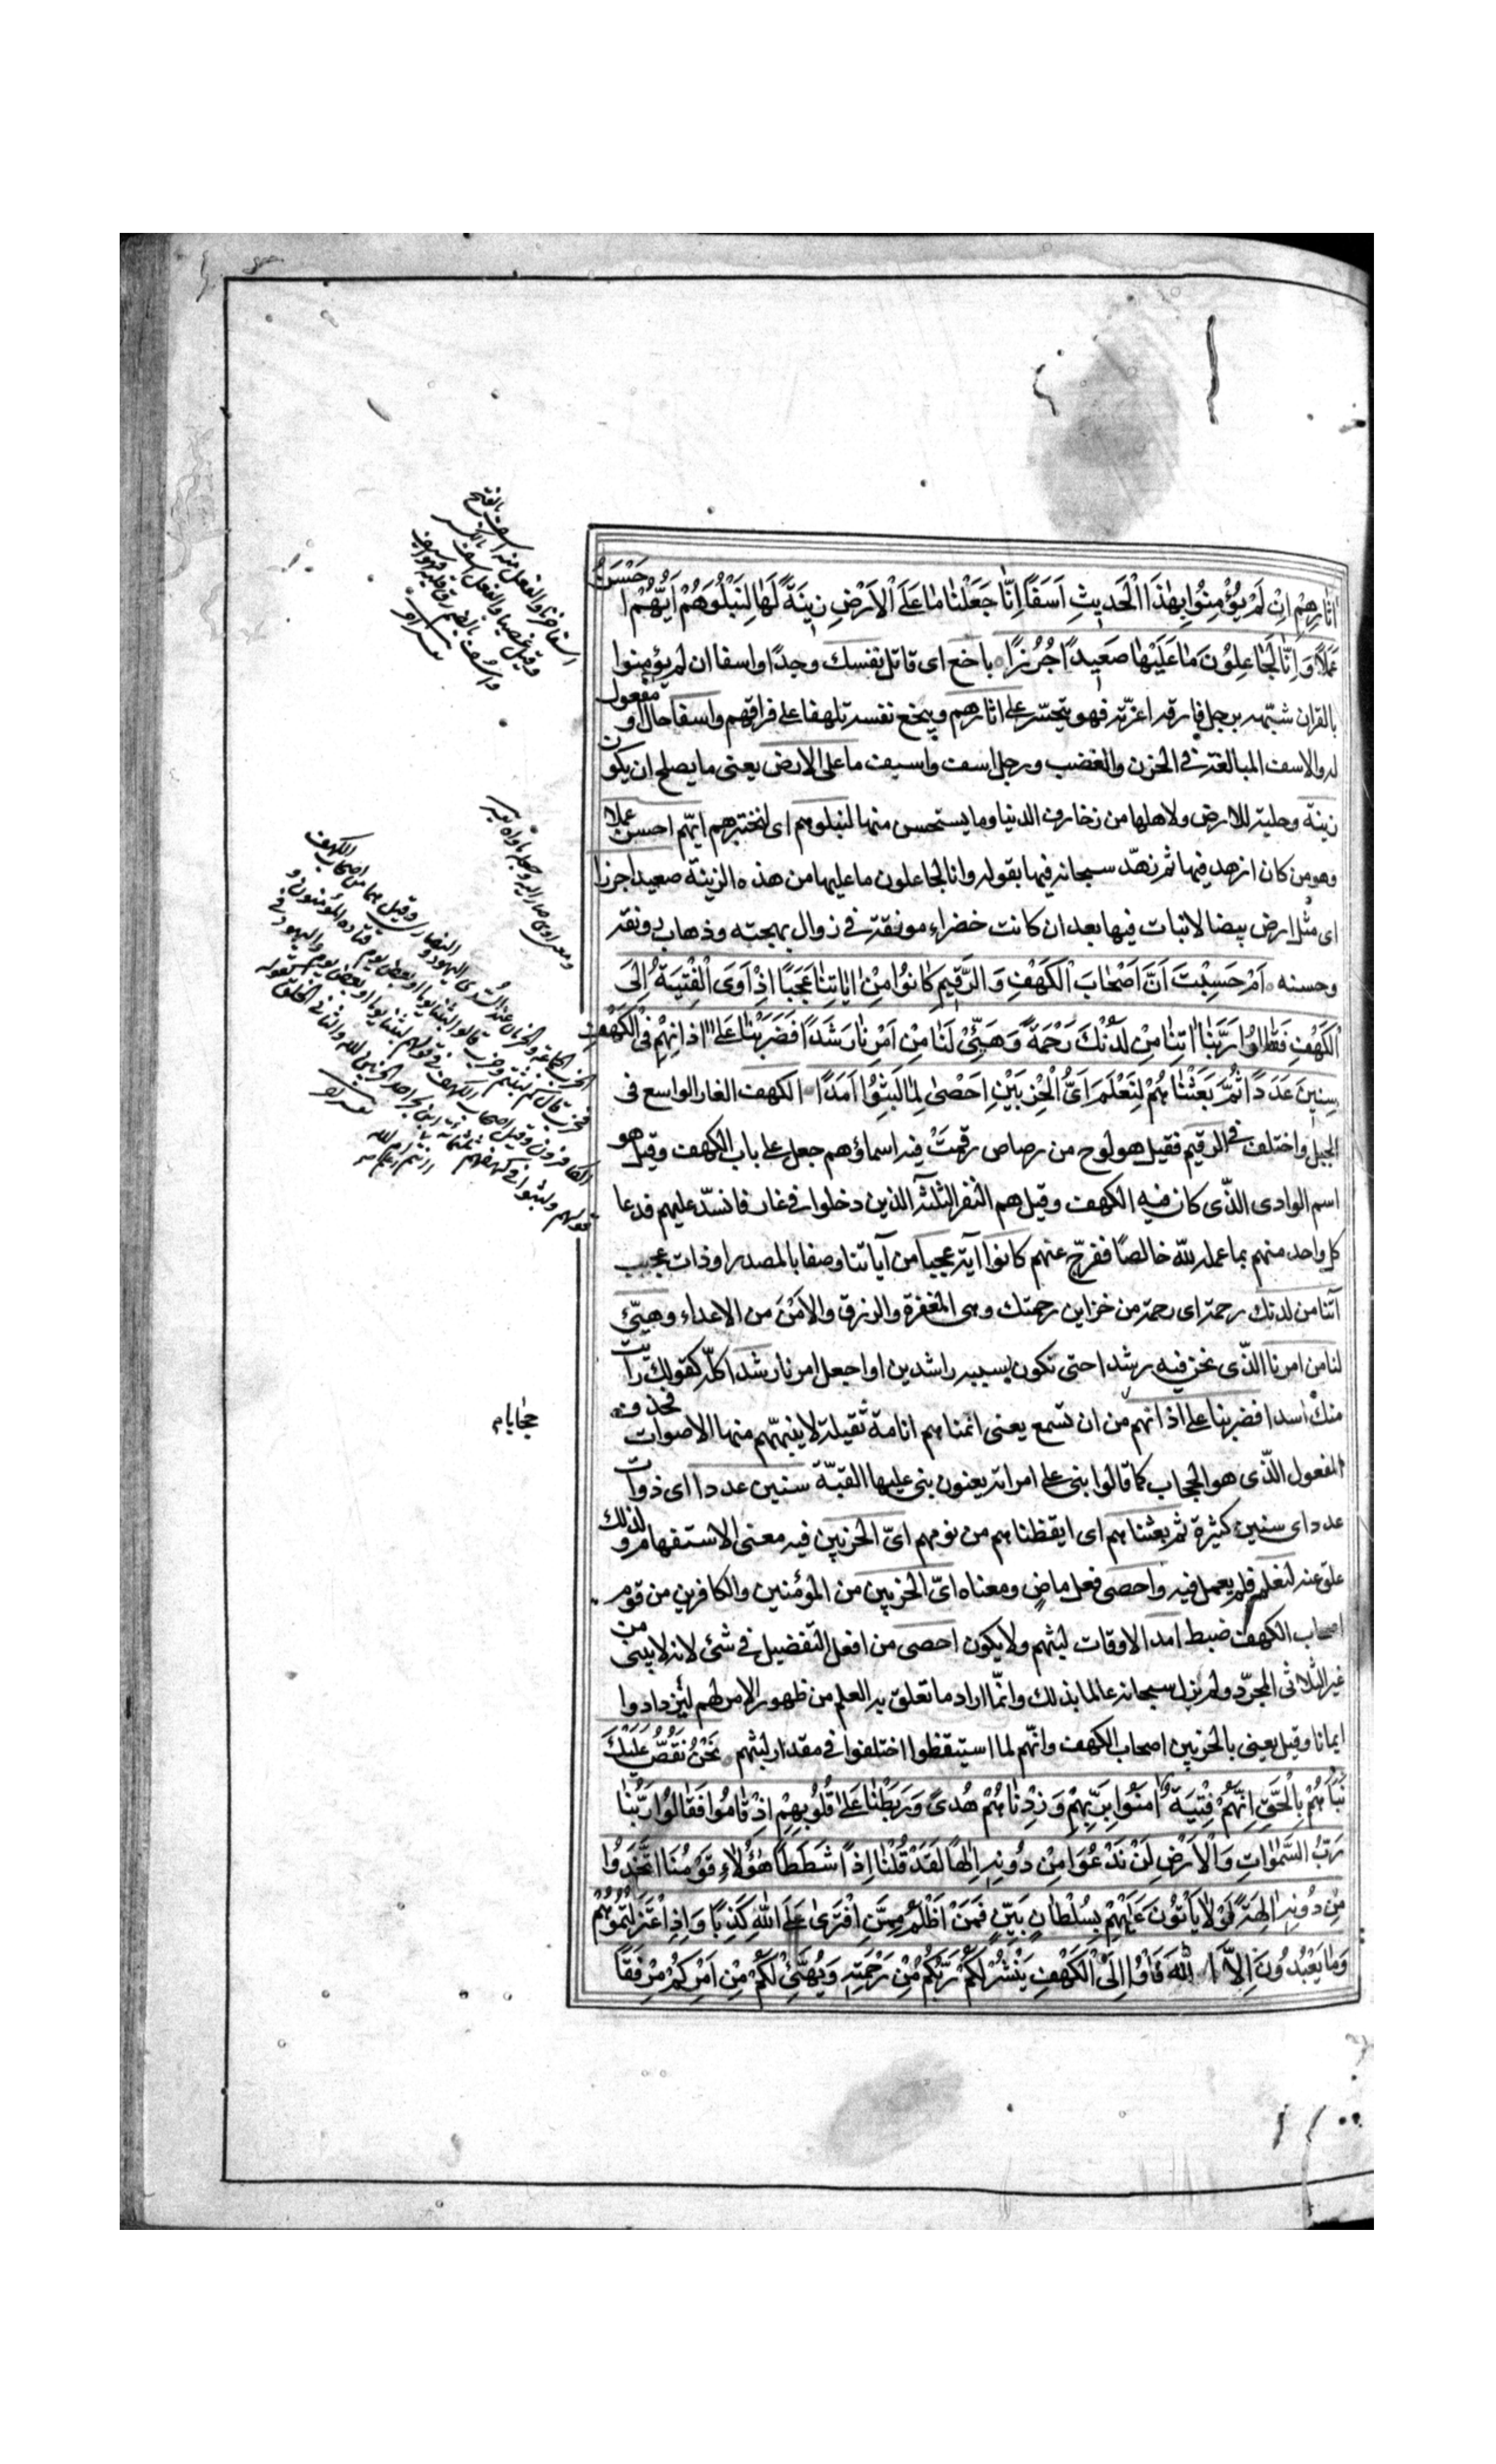 اثَارِهِمْ اِنْ لَمْ يُؤْمِنُوا بِهٰذَا الْحَدِيثِ اَسَفًا اِنَّا جَعَلْنَا مَا عَلَى الْاَرْضِ زِينَةً لَهَا لِنَبْلُوَهُمْ اَيُّهُمْ اَحْسَنُ
عَمَلًا وَاِنَّا لَجَاعِلُونَ مَا عَلَيْهَا صَعِيدًا جُرُزًا باخع اى قاتل نفسك وجدًا واسفا ان لم يؤمنوا
بالقران شبّهه برجل فارقه اعزّته فهو يتحسّر على اثارهم ويبخع نفسه تلهفا على فراقهم واسفا حال او مفعول
له والاسف المبالغة فى الحزن والغضب ورجل اسف واسيف ما على الارض يعنى ما يصلح ان يكون
زينة وحلية للارض ولاهلها من زخارف الدنيا وما يستحسن منها لنبلوهم اى لنختبرهم ايّهم احسن عملا
وهو من كان ازهد فيها ثم زهّد سبحانه فيها بقوله وانا لجاعلون ما عليها من هذه الزينة صعيدا جرزا
اى مثل ارض بيضا لا نبات فيها بعد ان كانت خضراء مونقة فى زوال بهجته وذهاب رونقه
وحسنه اَمْ حَسِبْتَ اَنَّ اَصْحَابَ الْكَهْفِ وَالرَّقِيمِ كَانُوا مِنْ ايَاتِنَا عَجَبًا اِذْ اَوَى الْفِتْيَةُ اِلَى
الْكَهْفِ فَقَالُوا رَبَّنَا اتِنَا مِنْ لَدُنْكَ رَحْمَةً وَهَيِّئْ لَنَا مِنْ اَمْرِنَا رَشَدًا فَضَرَبْنَا عَلَى اذَانِهِمْ فِى الْكَهْفِ
سِنِينَ عَدَدًا ثُمَّ بَعَثْنَاهُمْ لِنَعْلَمَ اَىُّ الْحِزْبَيْنِ اَحْصٰى لِمَا لَبِثُوا اَمَدًا الكهف الغار الواسع فى
الجبل واختلف فى الرقيم فقيل هو لوح من رصاص رقمت فيه اسماؤهم جعل على باب الكهف وقيل هو
اسم الوادى الّذى كان فيه الكهف وقيل هم النفر الثلثة الذين دخلوا فى غار فانسدّ عليهم فدعا
كل واحد منهم بما عمله للّه خالصًا ففرّج عنهم كانوا آية عجبا من آياتنا وصفا بالمصدر او ذات عجب
آتنا من لدنك رحمة اى رحمة من خزاين رحمتك وهى المغفرة والرزق والامن من الاعداء وهيّئ
لنا من امرنا الّذى نحن فيه رشدا حتى نكون بسببه راشدين او اجعل امرنا رشدا كلّه كقولك رايت
منك اسدا فضربنا على اذانهم من ان تسمع يعنى انمناهم انامة ثقيلة لا ينبّههم منها الاصوات فحذف
المفعول الّذى هو الحجاب كما قالوا بنى على امراته يعنون بنى عليها القبّة سنين عددا اى ذوات
عدد اى سنين كثيرة ثم بعثناهم اى ايقظناهم من نومهم اىّ الحزبين فيه معنى الاستفهام ولذلك
علق عنه لنعلم فلم يعمل فيه واحصى فعل ماض ومعناه اىّ الحزبين من المؤمنين والكافرين من قوم
اصحاب الكهف ضبط امدا لاوقات لبثهم ولا يكون احصى من افعل التفضيل فى شئ لانه لا يبنى من
غير الثلاثى المجرّد ولم يزل سبحانه عالما بذلك وانّما اراد ما تعلق به العلم من ظهور الامر لهم ليزدادوا
ايمانا وقيل يعنى بالحزبين اصحاب الكهف وانّهم لما استيقظوا اختلفوا فى مقدار لبثهم نَحْنُ نَقُصُّ عَلَيْكَ
نَبَاَهُمْ بِالْحَقِّ اِنَّهُمْ فِتْيَةٌ امَنُوا بِرَبِّهِمْ وَزِدْنَاهُمْ هُدًى وَرَبَطْنَا عَلَى قُلُوبِهِمْ اِذْ قَامُوا فَقَالُوا رَبُّنَا
رَبُّ السَّمٰوَاتِ وَالْاَرْضِ لَنْ نَدْعُوَا مِنْ دُونِهِ اِلٰهًا لَقَدْ قُلْنَا اِذًا شَطَطًا هٰؤُلَاءِ قَوْمُنَا اتَّخَذُوا
مِنْ دُونِهِ الِهَةً لَوْلَا يَاْتُونَ عَلَيْهِمْ بِسُلْطَانٍ بَيِّنٍ فَمَنْ اَظْلَمُ مِمَّنِ افْتَرٰى عَلَى اللّٰهِ كَذِبًا وَاِذِ اعْتَزَلْتُمُوهُمْ
وَمَا يَعْبُدُونَ اِلَّا اللّٰهَ فَاْوُا اِلَى الْكَهْفِ يَنْشُرْ لَكُمْ رَبُّكُمْ مِنْ رَحْمَتِهِ وَيُهَيِّئْ لَكُمْ مِنْ اَمْرِكُمْ مِرْفَقًا